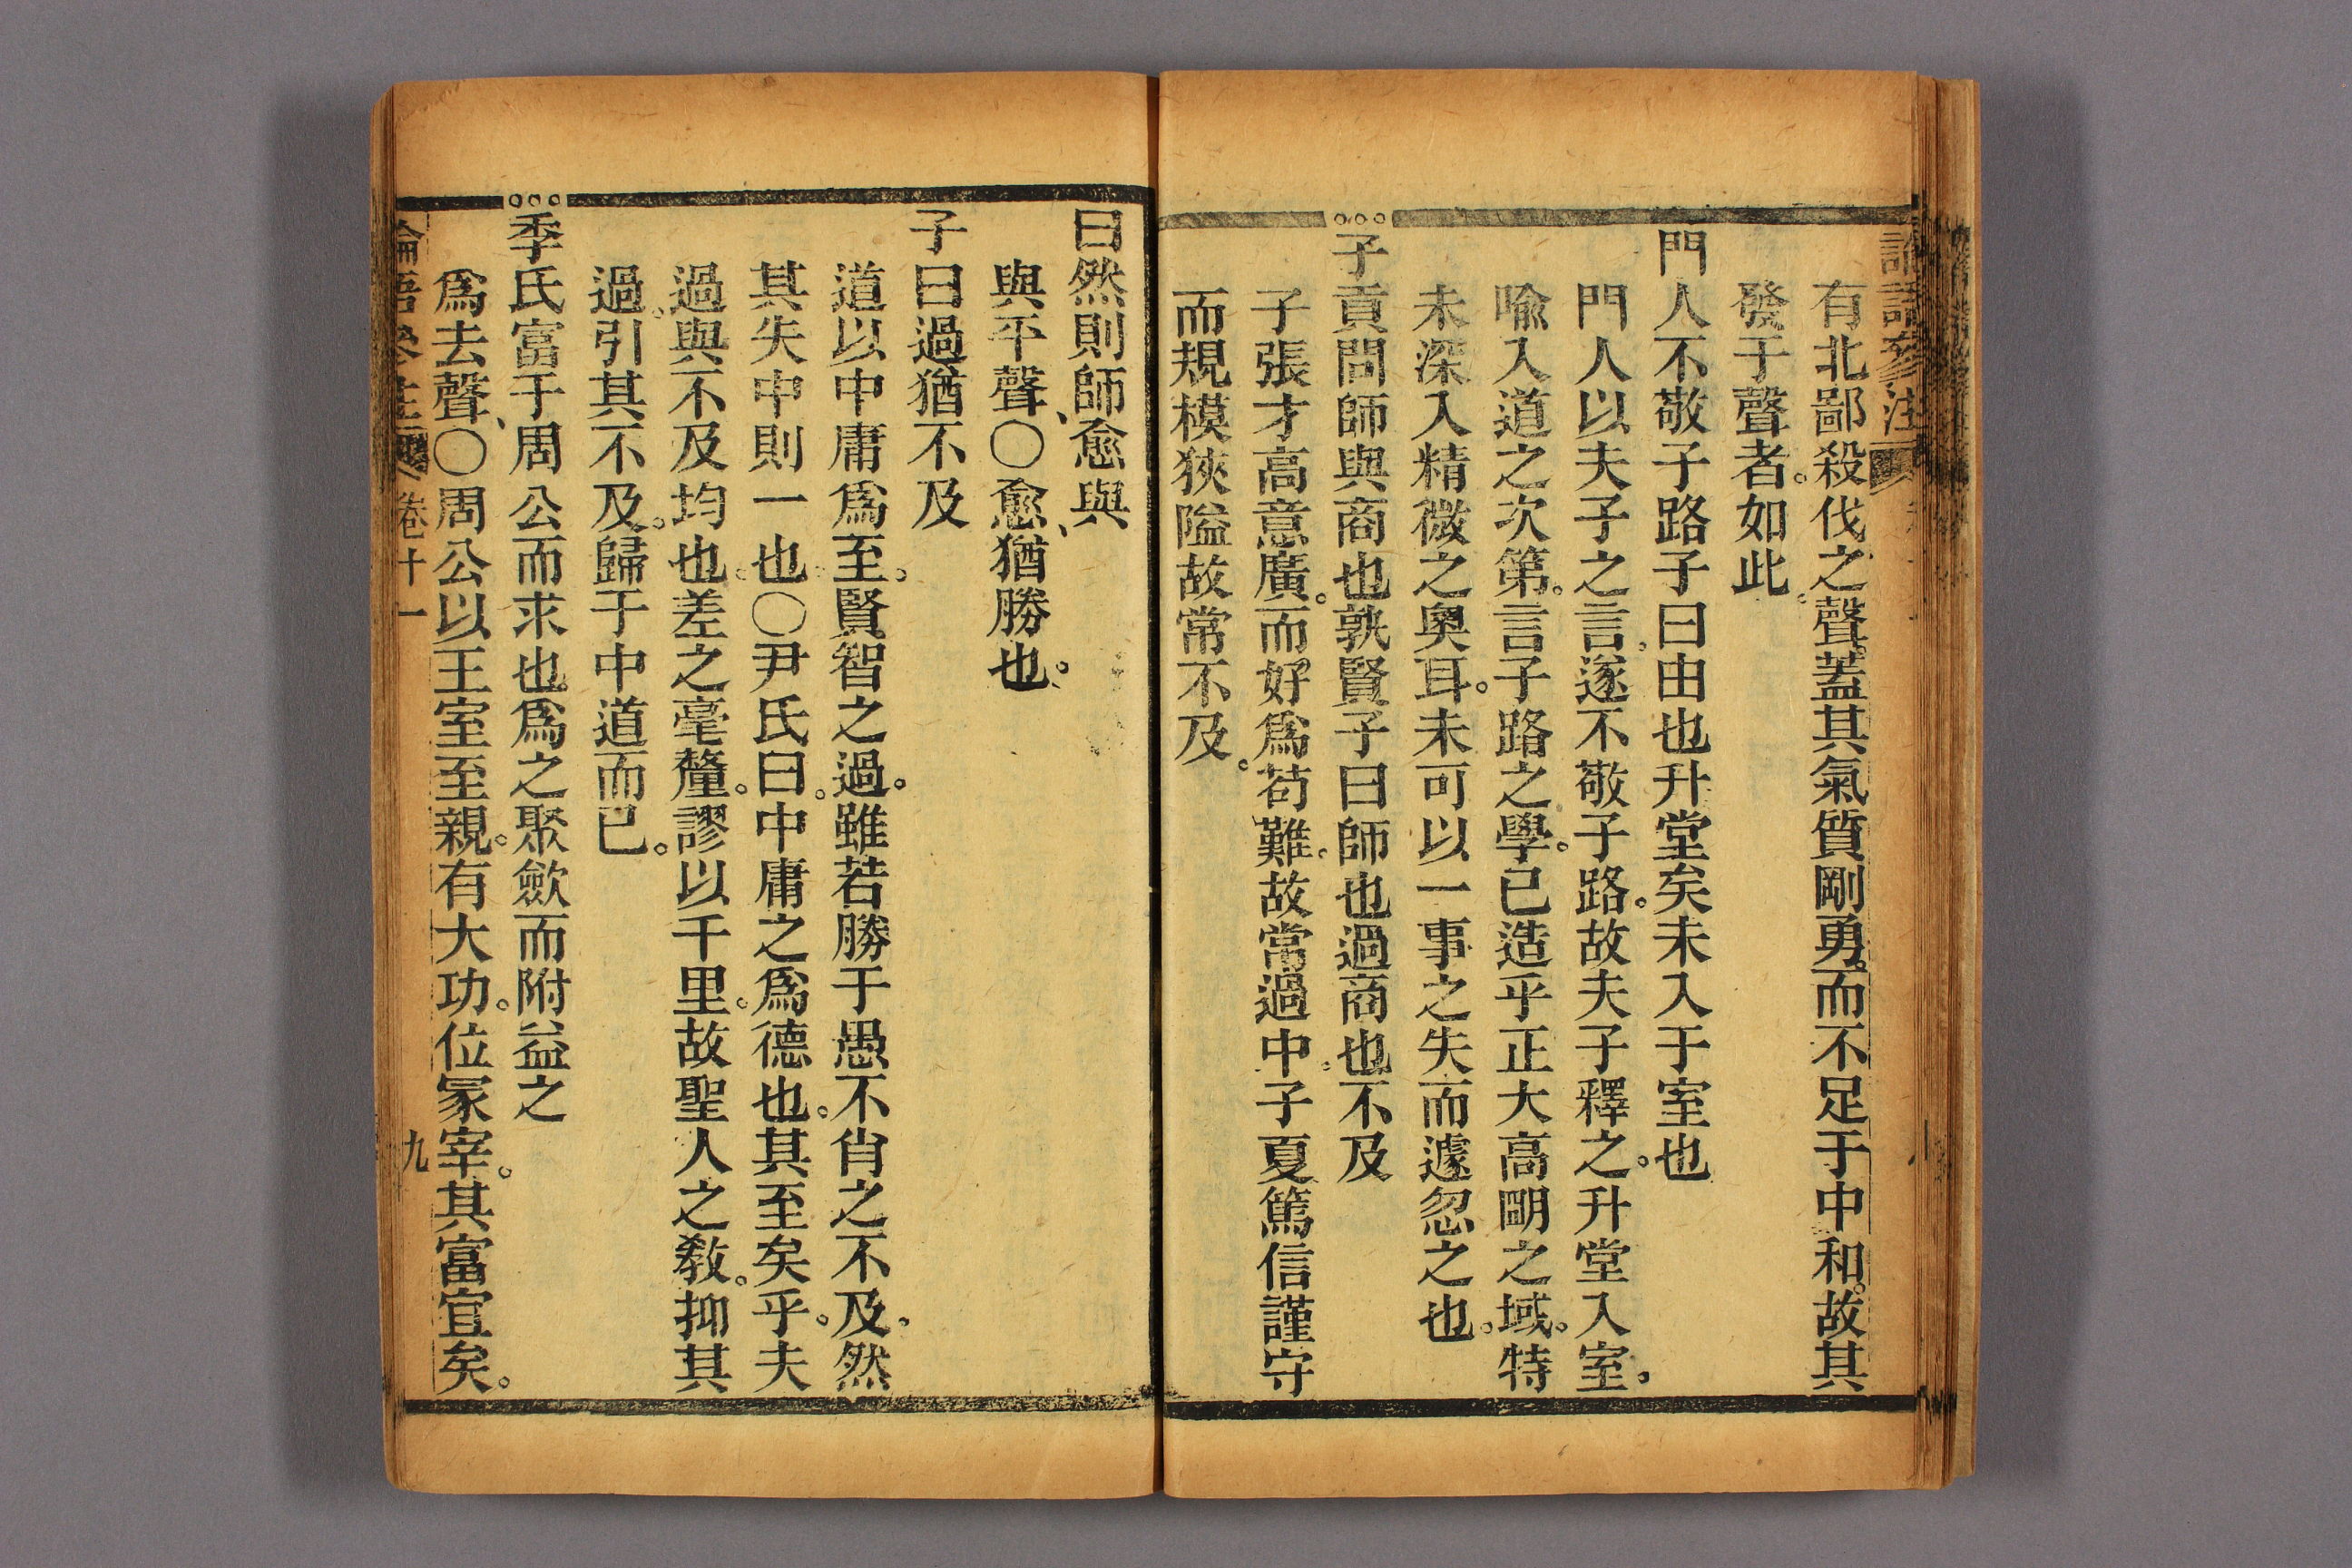 論語參注
有北鄙殺伐之聲。蓋其氣質剛勇。而不足于中和。故其
發于聲者。如此。
門人不敬子路子曰由也升堂矣未入于室也
門人以夫子之言。遂不敬子路。故夫子釋之。升堂入室。
喻入道之次第。言子路之學。已造乎正大高明之域。特
未深入精微之奧耳。未可以一事之失而遽忽之也。
子貢問師與商也孰賢子曰師也過商也不及
子張才高意廣。而好爲苟難。故常過中。子夏篤信謹守
而規模狹隘故常不及。
曰然則師愈與
與平聲、〇愈、猶勝也。
子曰過猶不及
道以中庸爲至。賢智之過。雖若勝于愚不肖之不及。然
其失中則一也。〇尹氏曰。中庸之爲德也。其至矣乎。夫
過與不及均也。差之毫釐。謬以千里。故聖人之敎。抑其
過。引其不及。歸于中道而已。
季氏富于周公而求也爲之聚斂而附益之
爲去聲、〇周公以王室至親。有大功。位冢宰。其富宜矣。
論語參注 卷十一 九